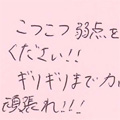 こつこつ弱点を
ください!!
ギリギリまで力
頑張れ!!!